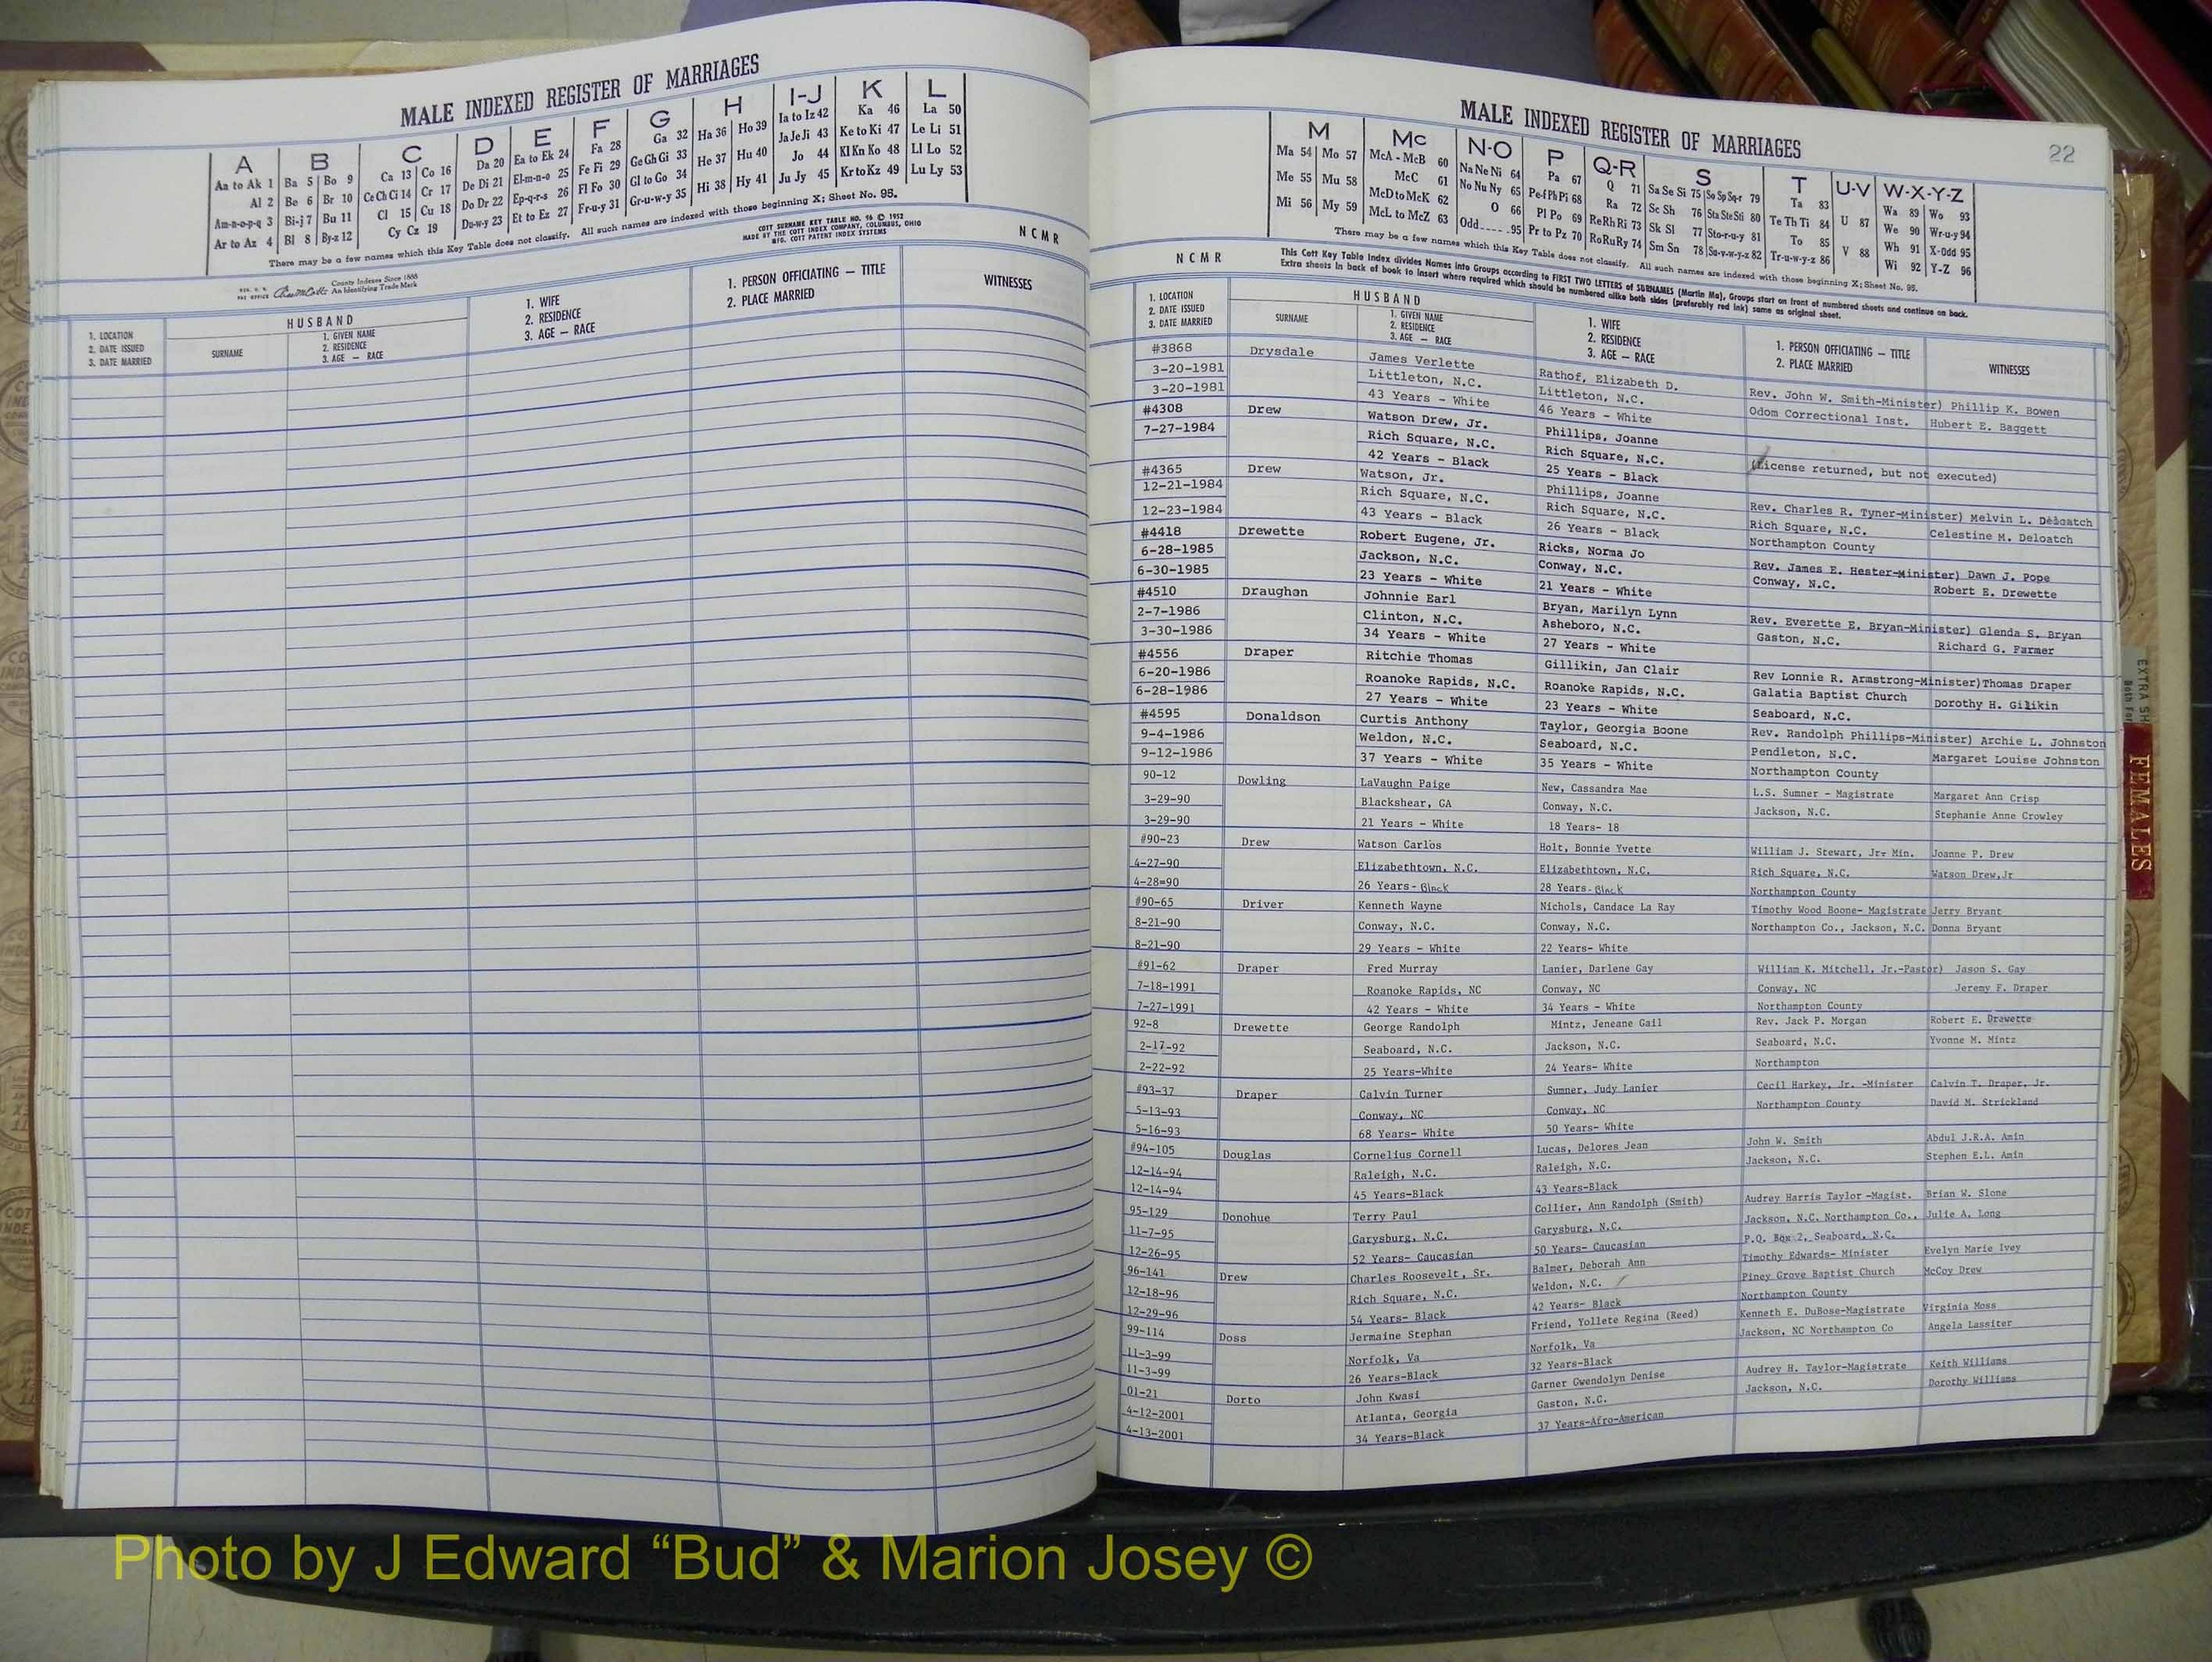 MALE INDEXED REGISTER OF MARRIAGES
A B C D E F G H I-J K L
Aa to Ak 1 Ba 5 Bo 9 Ca 13 Co 16 Da 20 Ea to Ek 24 Fa 28 Ga 32 Ha 36 Ho 39 Ia to Iz 42 Ka 46 La 50
Al 2 Be 6 Br 10 Ce Ch Ci 14 Cr 17 De Di 21 El-m-n-o 25 Fe Fi 29 Ge Gh Gi 33 He 37 Hu 40 Ja Je Ji 43 Ke to Ki 47 Le Li 51
Am-n-o-p-q 3 Bi-j 7 Bu 11 Cl 15 Cu 18 Do Dr 22 Ep-q-r-s 26 Fl Fo 30 Gl to Go 34 Hi 38 Hy 41 Jo 44 Kl Kn Ko 48 Ll Lo 52
Ar to Az 4 Bl 8 By-z 12 Cy Cz 19 Du-w-y 23 Et to Ez 27 Fr-u-y 31 Gr-u-w-y 35 Ju Jy 45 Kr to Kz 49 Lu Ly 53
There may be a few names which this Key Table does not classify. All such names are indexed with those beginning X; Sheet No. 95.
COTT SURNAME KEY TABLE NO. 96 © 1952
MADE BY THE COTT INDEX COMPANY, COLUMBUS, OHIO
MFG. COTT PATENT INDEX SYSTEMS
NCMR
County Indexes Since 1888
An Identifying Trade Mark
1. LOCATION
2. DATE ISSUED
3. DATE MARRIED
HUSBAND
SURNAME
1. GIVEN NAME
2. RESIDENCE
3. AGE — RACE
1. WIFE
2. RESIDENCE
3. AGE — RACE
1. PERSON OFFICIATING — TITLE
2. PLACE MARRIED
WITNESSES
MALE INDEXED REGISTER OF MARRIAGES
22
M Mc N-O P Q-R S T U-V W-X-Y-Z
Ma 54 Mo 57 McA - McB 60 Na Ne Ni 64 Pa 67 Q 71 Sa Se Si 75 So Sp Sq-r 79 Ta 83 U 87 Wa 89 Wo 93
Me 55 Mu 58 McC 61 No Nu Ny 65 Pe-f Ph Pi 68 Ra 72 Sc Sh 76 Sta Ste Sti 80 Te Th Ti 84 We 90 Wr-u-y 94
Mi 56 My 59 McD to McK 62 O 66 Pl Po 69 Re Rh Ri 73 Sk Sl 77 Sto-r-u-y 81 To 85 V 88 Wh 91 X-Odd 95
McL to McZ 63 Odd 95 Pr to Pz 70 Ro Ru Ry 74 Sm Sn 78 Su-v-w-y-z 82 Tr-u-w-y-z 86 Wi 92 Y-Z 96
There may be a few names which this Key Table does not classify. All such names are indexed with those beginning X; Sheet No. 95.
NCMR
This Cott Key Table Index divides Names into Groups according to FIRST TWO LETTERS of SURNAMES (Martin Ma), Groups start on front of numbered sheets and continue on back.
Extra sheets in back of book to insert where required which should be numbered alike both sides (preferably red ink) same as original sheet.
1. LOCATION
2. DATE ISSUED
3. DATE MARRIED
HUSBAND
SURNAME
1. GIVEN NAME
2. RESIDENCE
3. AGE — RACE
1. WIFE
2. RESIDENCE
3. AGE — RACE
1. PERSON OFFICIATING — TITLE
2. PLACE MARRIED
WITNESSES
#3868 Drysdale James Verlette Rathof, Elizabeth D. Rev. John W. Smith-Minister) Phillip K. Bowen
3-20-1981 Littleton, N.C. Littleton, N.C. Odom Correctional Inst. Hubert E. Baggett
3-20-1981 43 Years - White 46 Years - White
#4308 Drew Watson Drew, Jr. Phillips, Joanne
7-27-1984 Rich Square, N.C. Rich Square, N.C. (License returned, but not executed)
42 Years - Black 25 Years - Black
#4365 Drew Watson, Jr. Phillips, Joanne Rev. Charles R. Tyner-Minister) Melvin L. Deloatch
12-21-1984 Rich Square, N.C. Rich Square, N.C. Rich Square, N.C. Celestine M. Deloatch
12-23-1984 43 Years - Black 26 Years - Black Northampton County
#4418 Drewette Robert Eugene, Jr. Ricks, Norma Jo Rev. James E. Hester-Minister) Dawn J. Pope
6-28-1985 Jackson, N.C. Conway, N.C. Conway, N.C. Robert E. Drewette
6-30-1985 23 Years - White 21 Years - White
#4510 Draughan Johnnie Earl Bryan, Marilyn Lynn Rev. Everette E. Bryan-Minister) Glenda S. Bryan
2-7-1986 Clinton, N.C. Asheboro, N.C. Gaston, N.C. Richard G. Farmer
3-30-1986 34 Years - White 27 Years - White
#4556 Draper Ritchie Thomas Gillikin, Jan Clair Rev Lonnie R. Armstrong-Minister) Thomas Draper
6-20-1986 Roanoke Rapids, N.C. Roanoke Rapids, N.C. Galatia Baptist Church Dorothy H. Gilikin
6-28-1986 27 Years - White 23 Years - White Seaboard, N.C.
#4595 Donaldson Curtis Anthony Taylor, Georgia Boone Rev. Randolph Phillips-Minister) Archie L. Johnston
9-4-1986 Weldon, N.C. Seaboard, N.C. Pendleton, N.C. Margaret Louise Johnston
9-12-1986 37 Years - White 35 Years - White Northampton County
90-12 Dowling LaVaughn Paige New, Cassandra Mae L.S. Sumner - Magistrate Margaret Ann Crisp
3-29-90 Blackshear, GA Conway, N.C. Jackson, N.C. Stephanie Anne Crowley
3-29-90 21 Years - White 18 Years- 18
#90-23 Drew Watson Carlos Holt, Bonnie Yvette William J. Stewart, Jr- Min. Joanne P. Drew
4-27-90 Elizabethtown, N.C. Elizabethtown, N.C. Rich Square, N.C. Watson Drew,Jr
4-28=90 26 Years - Black 28 Years - Black Northampton County
#90-65 Driver Kenneth Wayne Nichols, Candace La Ray Timothy Wood Boone- Magistrate Jerry Bryant
8-21-90 Conway, N.C. Conway, N.C. Northampton Co., Jackson, N.C. Donna Bryant
8-21-90 29 Years - White 22 Years- White
#91-62 Draper Fred Murray Lanier, Darlene Gay William K. Mitchell, Jr.-Pastor) Jason S. Gay
7-18-1991 Roanoke Rapids, NC Conway, NC Conway, NC Jeremy F. Draper
7-27-1991 42 Years - White 34 Years - White Northampton County
92-8 Drewette George Randolph Mintz, Jeneane Gail Rev. Jack P. Morgan Robert E. Drewette
2-17-92 Seaboard, N.C. Jackson, N.C. Seaboard, N.C. Yvonne M. Mintz
2-22-92 25 Years-White 24 Years- White Northampton
#93-37 Draper Calvin Turner Sumner, Judy Lanier Cecil Harkey, Jr. -Minister Calvin T. Draper, Jr.
5-13-93 Conway, NC Conway, NC Northampton County David M. Strickland
5-16-93 68 Years- White 50 Years- White
#94-105 Douglas Cornelius Cornell Lucas, Delores Jean John W. Smith Abdul J.R.A. Amin
12-14-94 Raleigh, N.C. Raleigh, N.C. Jackson, N.C. Stephen E.L. Amin
12-14-94 45 Years-Black 43 Years-Black
95-129 Donohue Terry Paul Collier, Ann Randolph (Smith) Audrey Harris Taylor -Magist. Brian W. Slone
11-7-95 Garysburg, N.C. Garysburg, N.C. Jackson, N.C. Northampton Co., Julie A. Long
12-26-95 52 Years- Caucasian 50 Years- Caucasian P.O. Box 2, Seaboard, N.C.
96-141 Drew Charles Roosevelt, Sr. Balmer, Deborah Ann Timothy Edwards- Minister Evelyn Marie Ivey
12-18-96 Rich Square, N.C. Weldon, N.C. Piney Grove Baptist Church McCoy Drew
12-29-96 54 Years- Black 42 Years- Black Northampton County
99-114 Doss Jermaine Stephan Friend, Yollete Regina (Reed) Kenneth E. DuBose-Magistrate Virginia Moss
11-3-99 Norfolk, Va Norfolk, Va Jackson, NC Northampton Co Angela Lassiter
11-3-99 26 Years-Black 32 Years-Black
01-21 Dorto John Kwasi Garner Gwendolyn Denise Audrey H. Taylor-Magistrate Keith Williams
4-12-2001 Atlanta, Georgia Gaston, N.C. Jackson, N.C. Dorothy Williams
4-13-2001 34 Years-Black 37 Years-Afro-American
EXTRA SH
Both For
FEMALES
Photo by J Edward “Bud” & Marion Josey ©